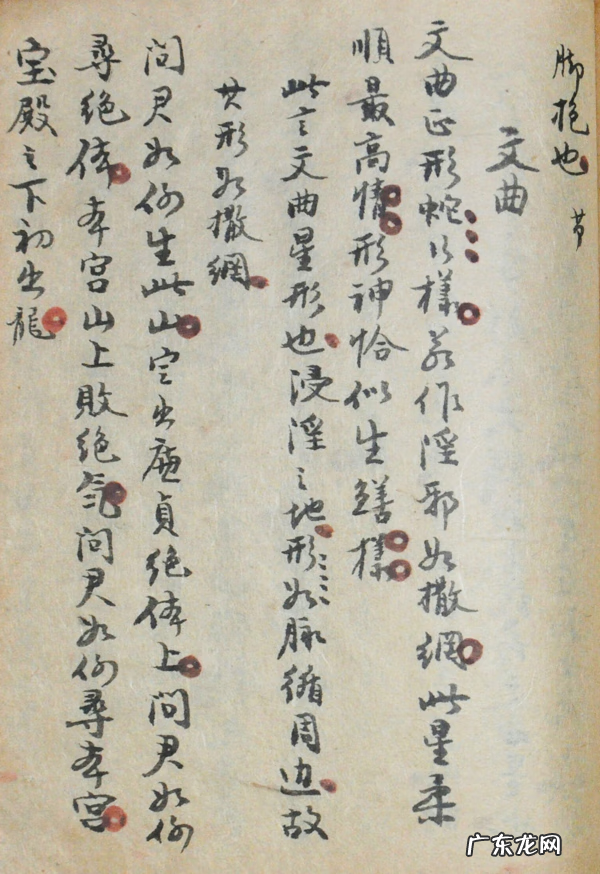 脚抱也 节
文曲
文曲正形蛇行樣若作淫邪如撒網此星柔
順最高情形神恰似生鱔樣
此言文曲星形也浸淫之地形如脉循周边故
其形如撒網
问君如何生此山定出廉貞绝体上问君如何
尋绝体本宫山上敗绝気问君如何尋本宫
宝殿之下初出龍
广东龙网